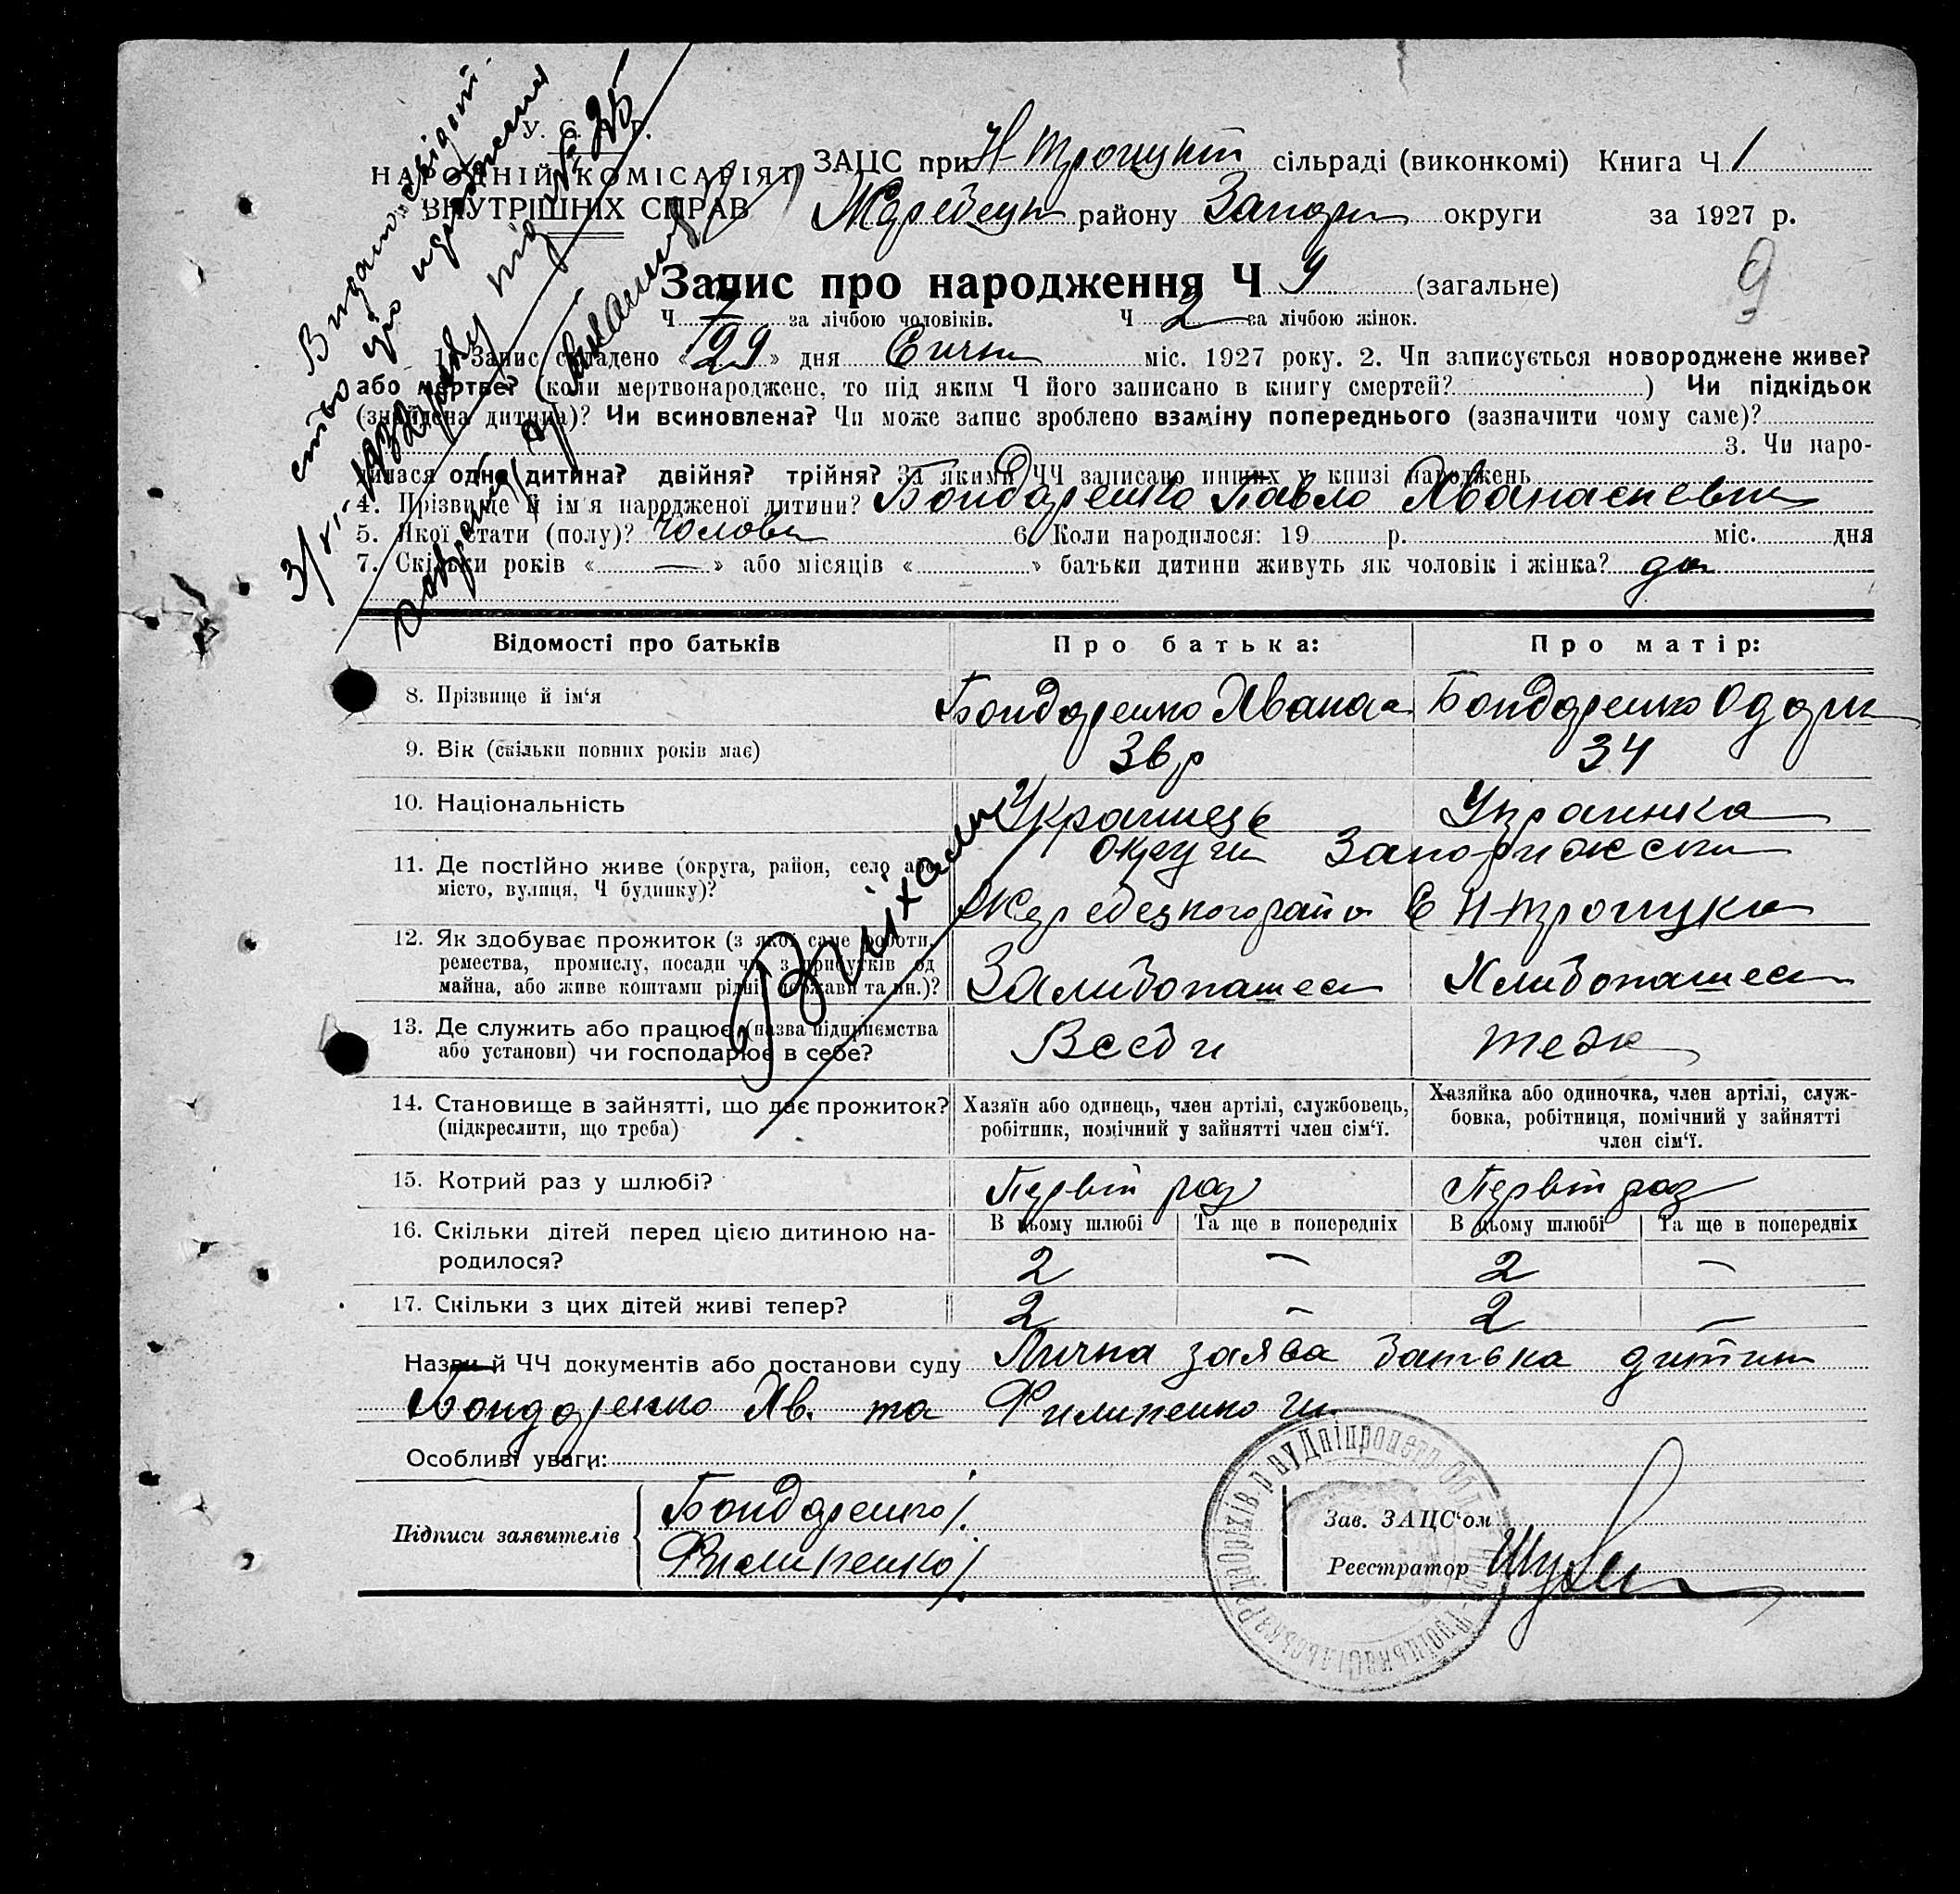 Видано свідоц-
ство про народження
3/VI- 1932 року під № 25
У. С. Р. Р.
НАРОДНІЙ КОМІСАРІЯТ
ВНУТРІШНІХ СПРАВ
ЗАЦС при Н-Троицкій сільраді (виконкомі) Книга Ч 1
Жеребецьк району Запор. округи за 1927 р.
9
Запис про народження Ч 9 (загальне)
Ч 7 за лічбою чоловіків. Ч 2 за лічбою жінок.
1. Запис складено «29» дня Сичня міс. 1927 року. 2. Чи записується новороджене живе?
або мертве? (коли мертвонароджене, то під яким Ч його записано в книгу смертей? ) Чи підкідьок
(знайдена дитина)? Чи всиновлена? Чи може запис зроблено взаміну попереднього (зазначити чому саме)?
3. Чи наро-
дилася одна дитина? двійня? трійня? За якими ЧЧ записано инших у книзі народжень
4. Прізвище й ім'я народженої дитини? Бондаренко Павло Яванасиевич
5. Якої стати (полу)? чолов 6. Коли народилося: 19 р. міс. дня
7. Скільки років « — » або місяців « » батьки дитини живуть як чоловік і жінка? да
Відомості про батьків Про батька: Про матір:
8. Прізвище й ім'я Бондаренко Явана Бондаренко Одари
9. Вік (скільки повних років має) 36 р 34
10. Національність Украинець Украинка
11. Де постійно живе (округа, район, село або округи Запорижськи
місто, вулиця, Ч будинку)? Жеребецкого райо С Н-Троицка
12. Як здобуває прожиток (з якої саме роботи,
ремества, промислу, посади чи з прибутків од
майна, або живе коштами рідні, держави та ин.)? Хлибопашес Хлибопашес
13. Де служить або працює (назва підприємства
або установи) чи господарює в себе? В себи теж
Вийхали
14. Становище в зайнятті, що дає прожиток?
(підкреслити, що треба)
Хазяїн або одинець, член артілі, службовець,
робітник, помічний у зайнятті член сім'ї.
Хазяйка або одиночка, член артілі, служ-
бовка, робітниця, помічний у зайнятті
член сім'ї.
15. Котрий раз у шлюбі? Первий раз Первий раз
16. Скільки дітей перед цією дитиною на-
родилося?
В цьому шлюбі Та ще в попередніх В цьому шлюбі Та ще в попередніх
2 — 2 —
17. Скільки з цих дітей живі тепер? 2 — 2 —
Назви й ЧЧ документів або постанови суду Лична заява батька дитини
Бондаренко Яв. та Филипенко
Особливі уваги:
Підписи заявителів Бондаренко/.
Филипенко/.
Зав. ЗАЦС'ом
Реєстратор